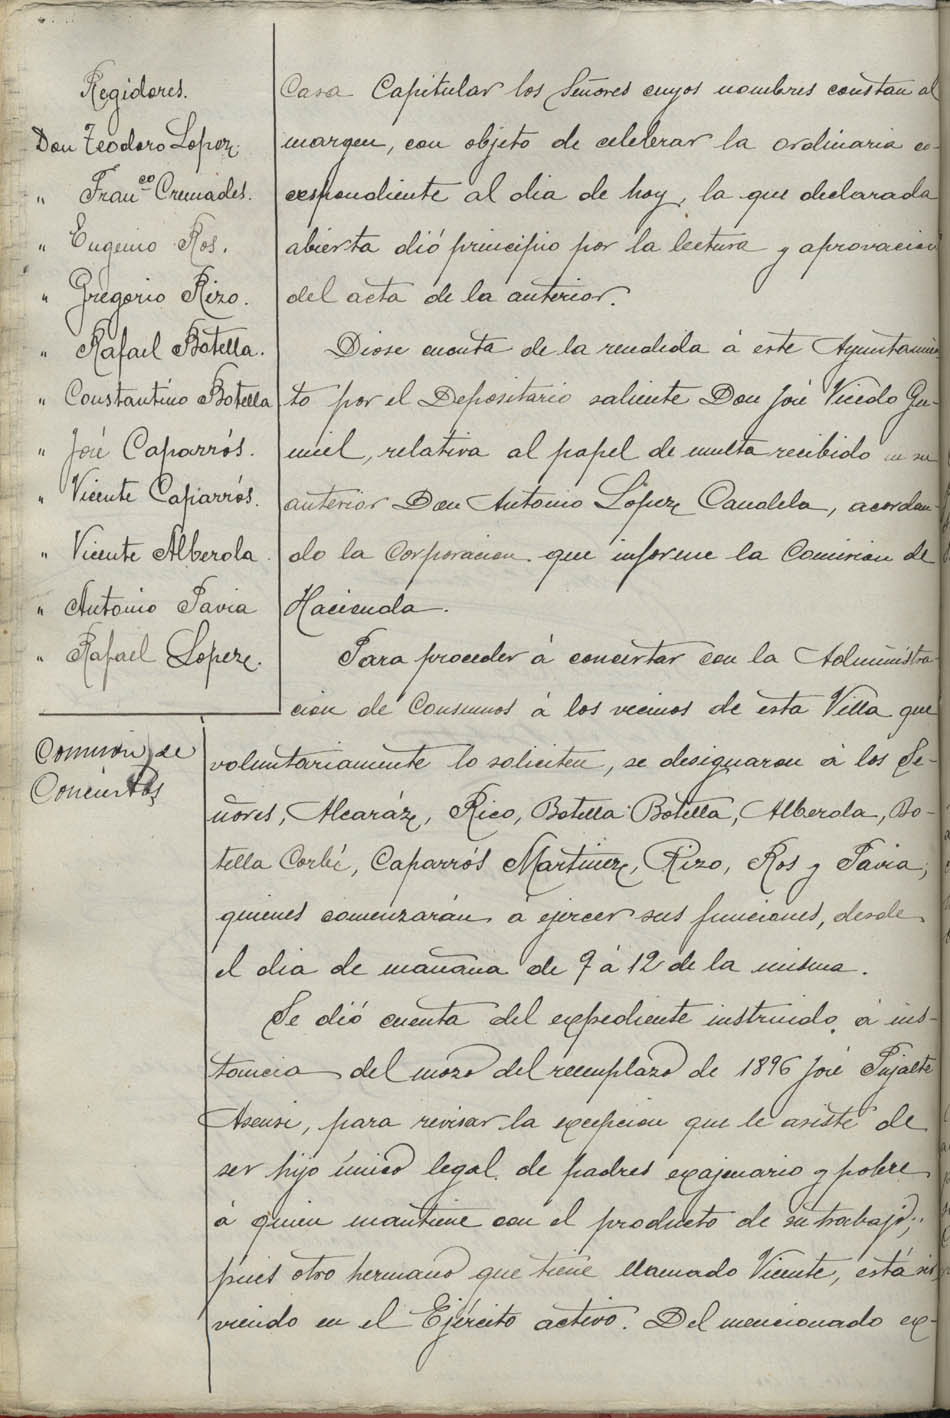 Regidores.
Don Teodoro Lopez.
" Fran.co Cremades.
" Eugenio Ros.
" Gregorio Rizo.
" Rafael Botella.
" Constantino Botella
" José Caparrós.
" Vicente Caparrós.
" Vicente Alberola.
" Antonio Pavia
" Rafael Lopez.
Casa Capitular los Señores cuyos nombres constan al
margen, con objeto de celebrar la ordinaria co-
respondiente al dia de hoy, la que declarada
abierta dió principio por la lectura y aprovacion
del acta de la anterior.
Diose cuenta de la rendida á este Ayuntamien
to por el Depositario saliente Don José Vicedo Gu-
miel, relativa al papel de multa recibido su
anterior Don Antonio López Candela, acordan-
do la Corporacion que informe la Comision de
Hacienda.
Para proceder á concertar con la Administra-
cion de Consumos á los vecinos de esta Villa que
Comisión de
Conciertos
voluntariamente lo soliciten, se designaron á los Se-
ñores, Alcaráz, Rico, Botella Botella, Alberola, Bo-
tella Corbí, Caparrós Martinez, Rizo, Ros y Pavia,
quienes comenzarán á ejercer sus funciones, desde
el dia de mañana de 9 á 12 de la misma.
Se dió cuenta del expediente instruido á ins-
tancia del mozo del reemplazo de 1896 José Pujalte
Asensi, para revisar la excepcion que le asiste de
ser hijo único legal de padres exajenario y pobre
á quien mantiene con el producto de su trabajo;
pues otro hermano que tiene llamado Vicente, está sir
viendo en el Ejército activo. Del mencionado ex-